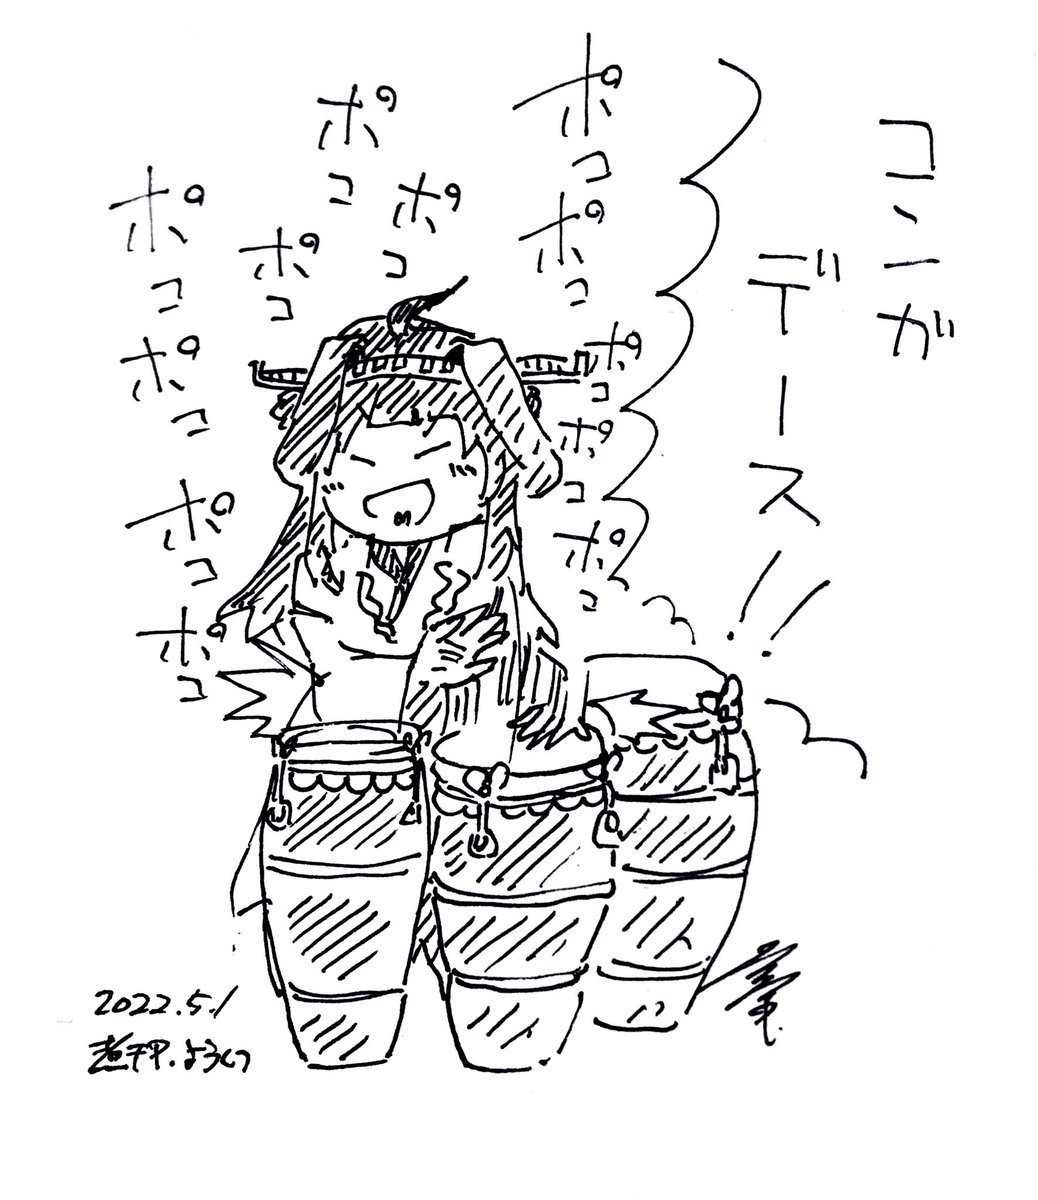 コンガ
デース!!
ポコ
ポコ
ポコ
ポコ
ポコ
ポコ
ポコ
ポコ
ポコ
ポコ
ポコ
ポコ
2022.5.1